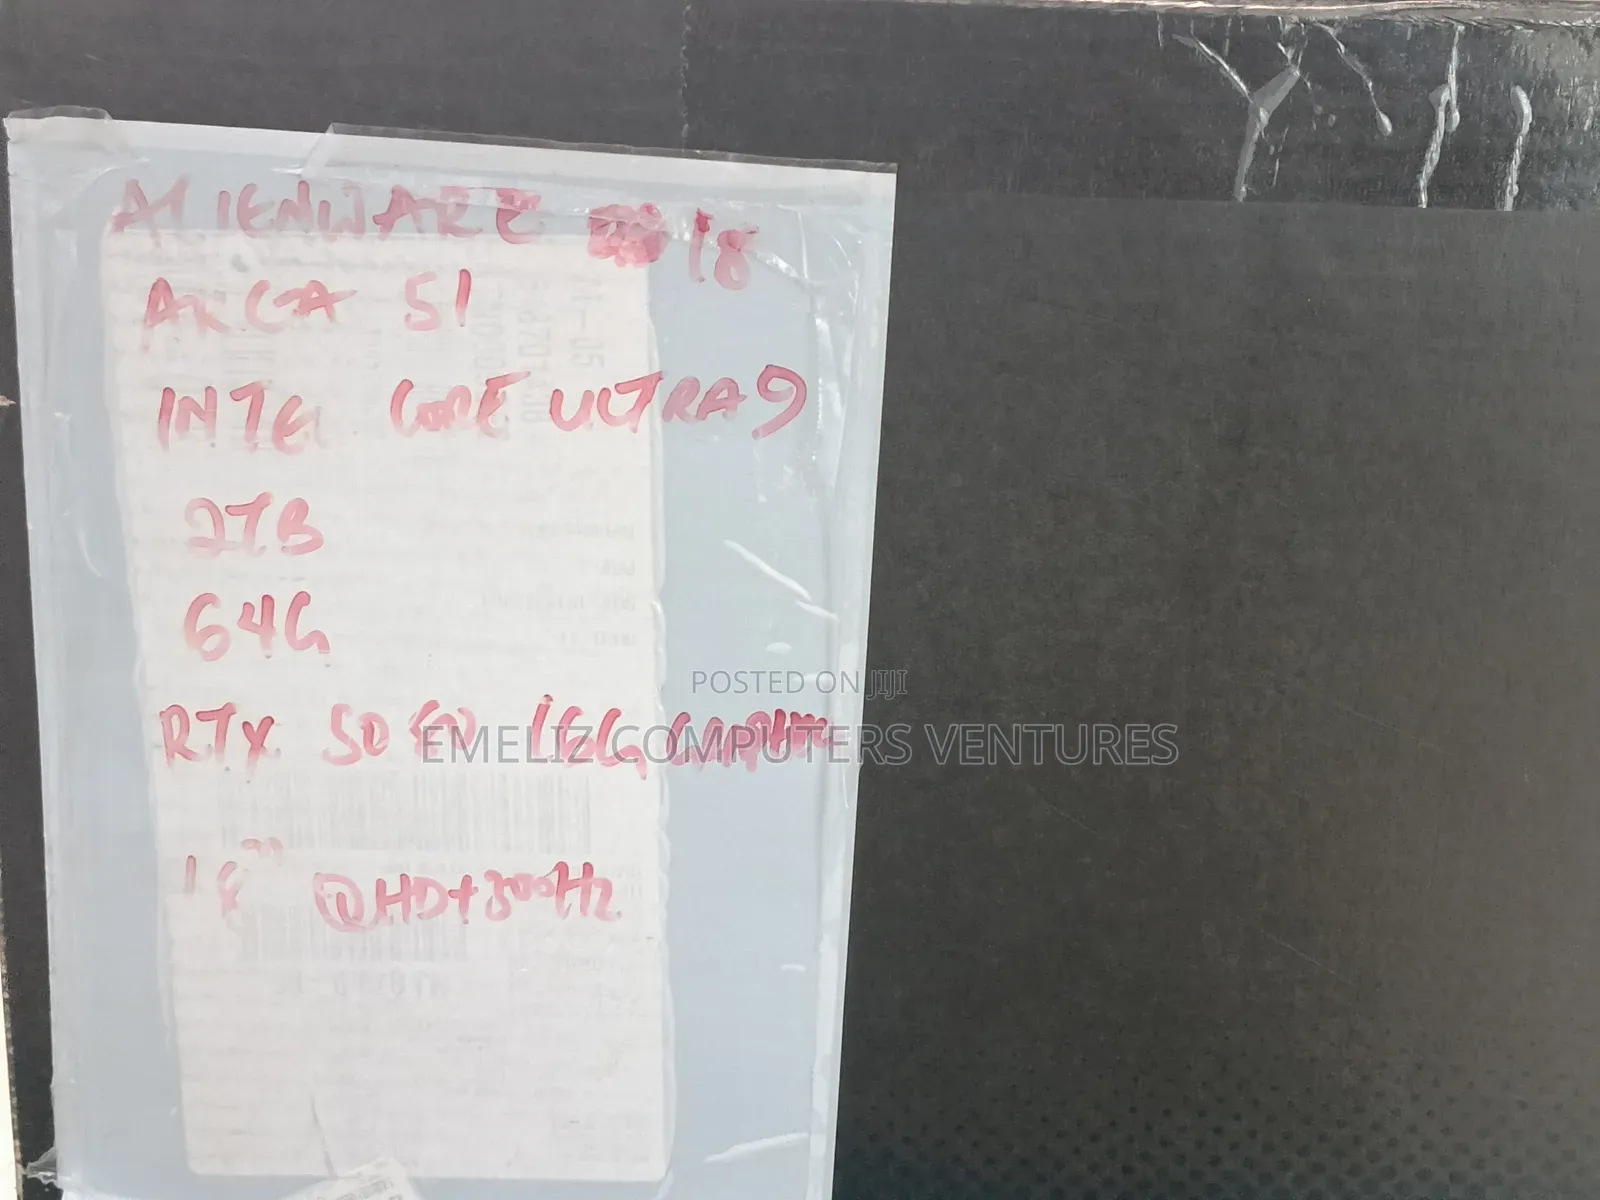 ALIENWARE 18
AREA 51
INTEL CORE ULTRA 9
2TB
64G
RTX 5080 16G GRAPHICS
18" QHD+300Hz
POSTED ON JIJI
EMELIZ COMPUTERS VENTURES